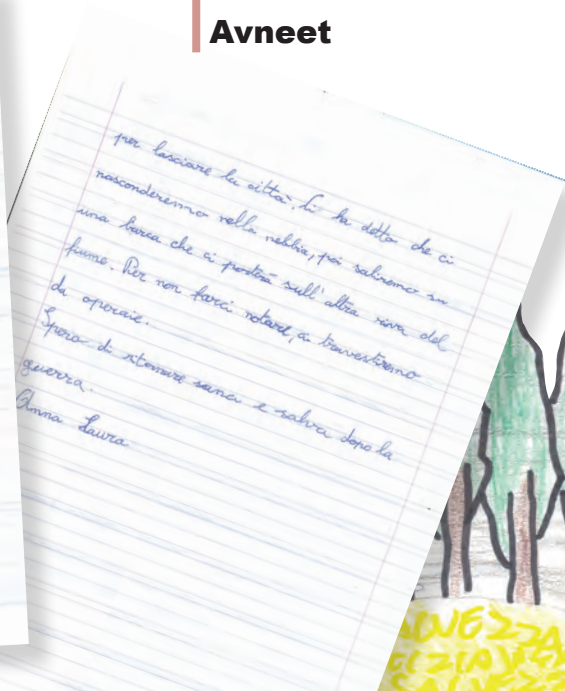 Avneet
per lasciare la città. Ci ha detto che ci
nasconderemo nella nebbia, poi saliremo su
una barca che ci porterà sull'altra riva del
fiume. Per non farci notare, ci travestiremo
da operaie.
Spero di ritornare sana e salva dopo la
guerra.
Anna Laura